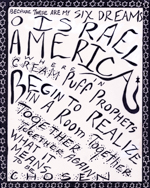 BECAUSE THESE ARE MY SIX DREAMS
IS RAEL
AMERICA
WHEN
CREAM PUFF PROPHETS
BEGIN TO REALIZE
IN A ROOM TOGETHER
TOGETHER AGAIN
WHAT IT
MEANS
CHOSEN